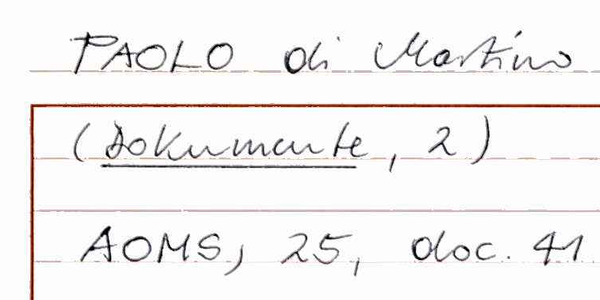 PAOLO di Martino
(Dokumente, 2)
AOMS, 25, doc. 41